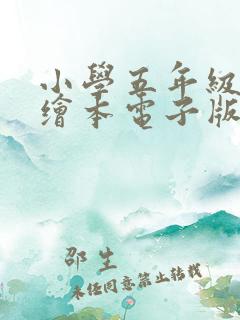 小學五年級
繪本電子版
邵生
未經同意禁止轉載